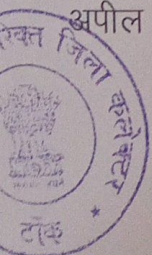 अपील
रिक्त जिला कलेक्टर *
टोंक